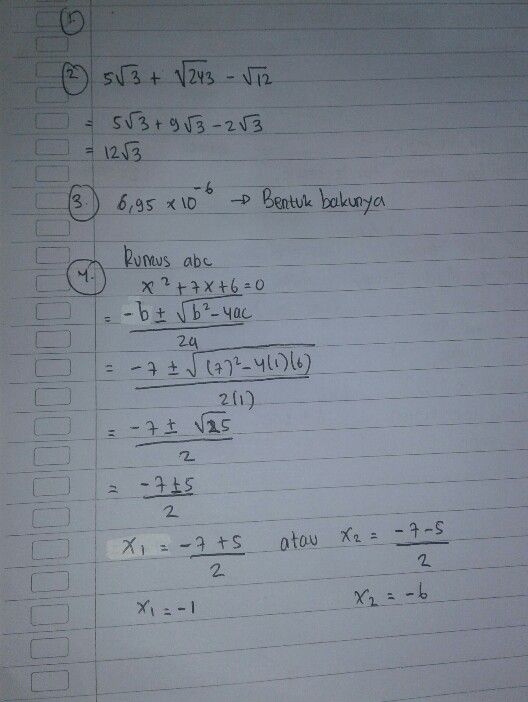 1.
2. 5√3 + √243 - √12
= 5√3 + 9√3 - 2√3
= 12√3
3. 6,95 × 10⁻⁶ → Bentuk bakunya
4. Rumus abc
x² + 7x + 6 = 0
= (-b ± √(b² - 4ac)) / 2a
= (-7 ± √((7)² - 4(1)(6))) / 2(1)
= (-7 ± √25) / 2
= (-7 ± 5) / 2
x₁ = (-7 + 5) / 2 atau x₂ = (-7 - 5) / 2
x₁ = -1 x₂ = -6